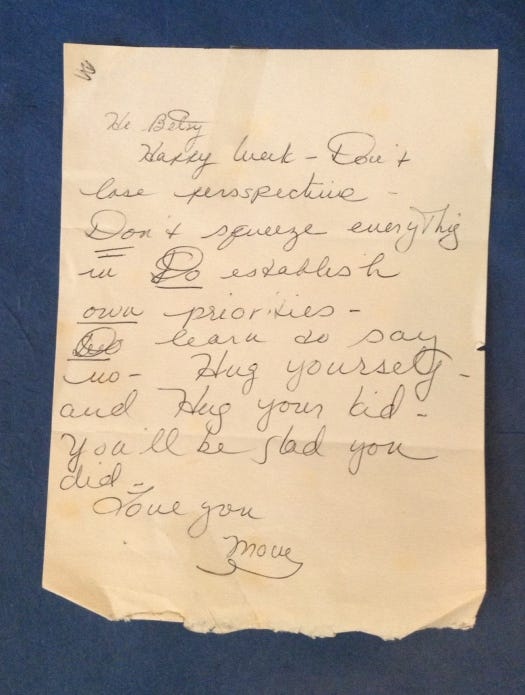 Hi Betsy
Happy Week - Don't
lose persspective -
Don't squeeze everyThig
in Do establish
own priorities -
Do learn to say
no - Hug yourself -
and Hug your kid -
You'll be glad you
did -
Love you